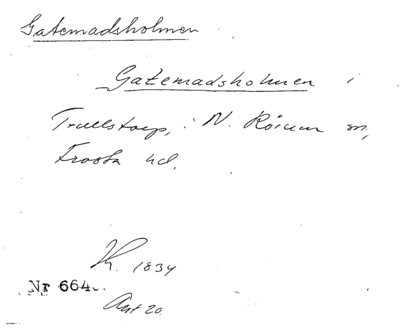 Gatemadsholmen
Gatemadsholmen i
Trullstorp, i N. Rörum sn,
Frosta hd.
K. 1834
Nr 664.
Akt 20.